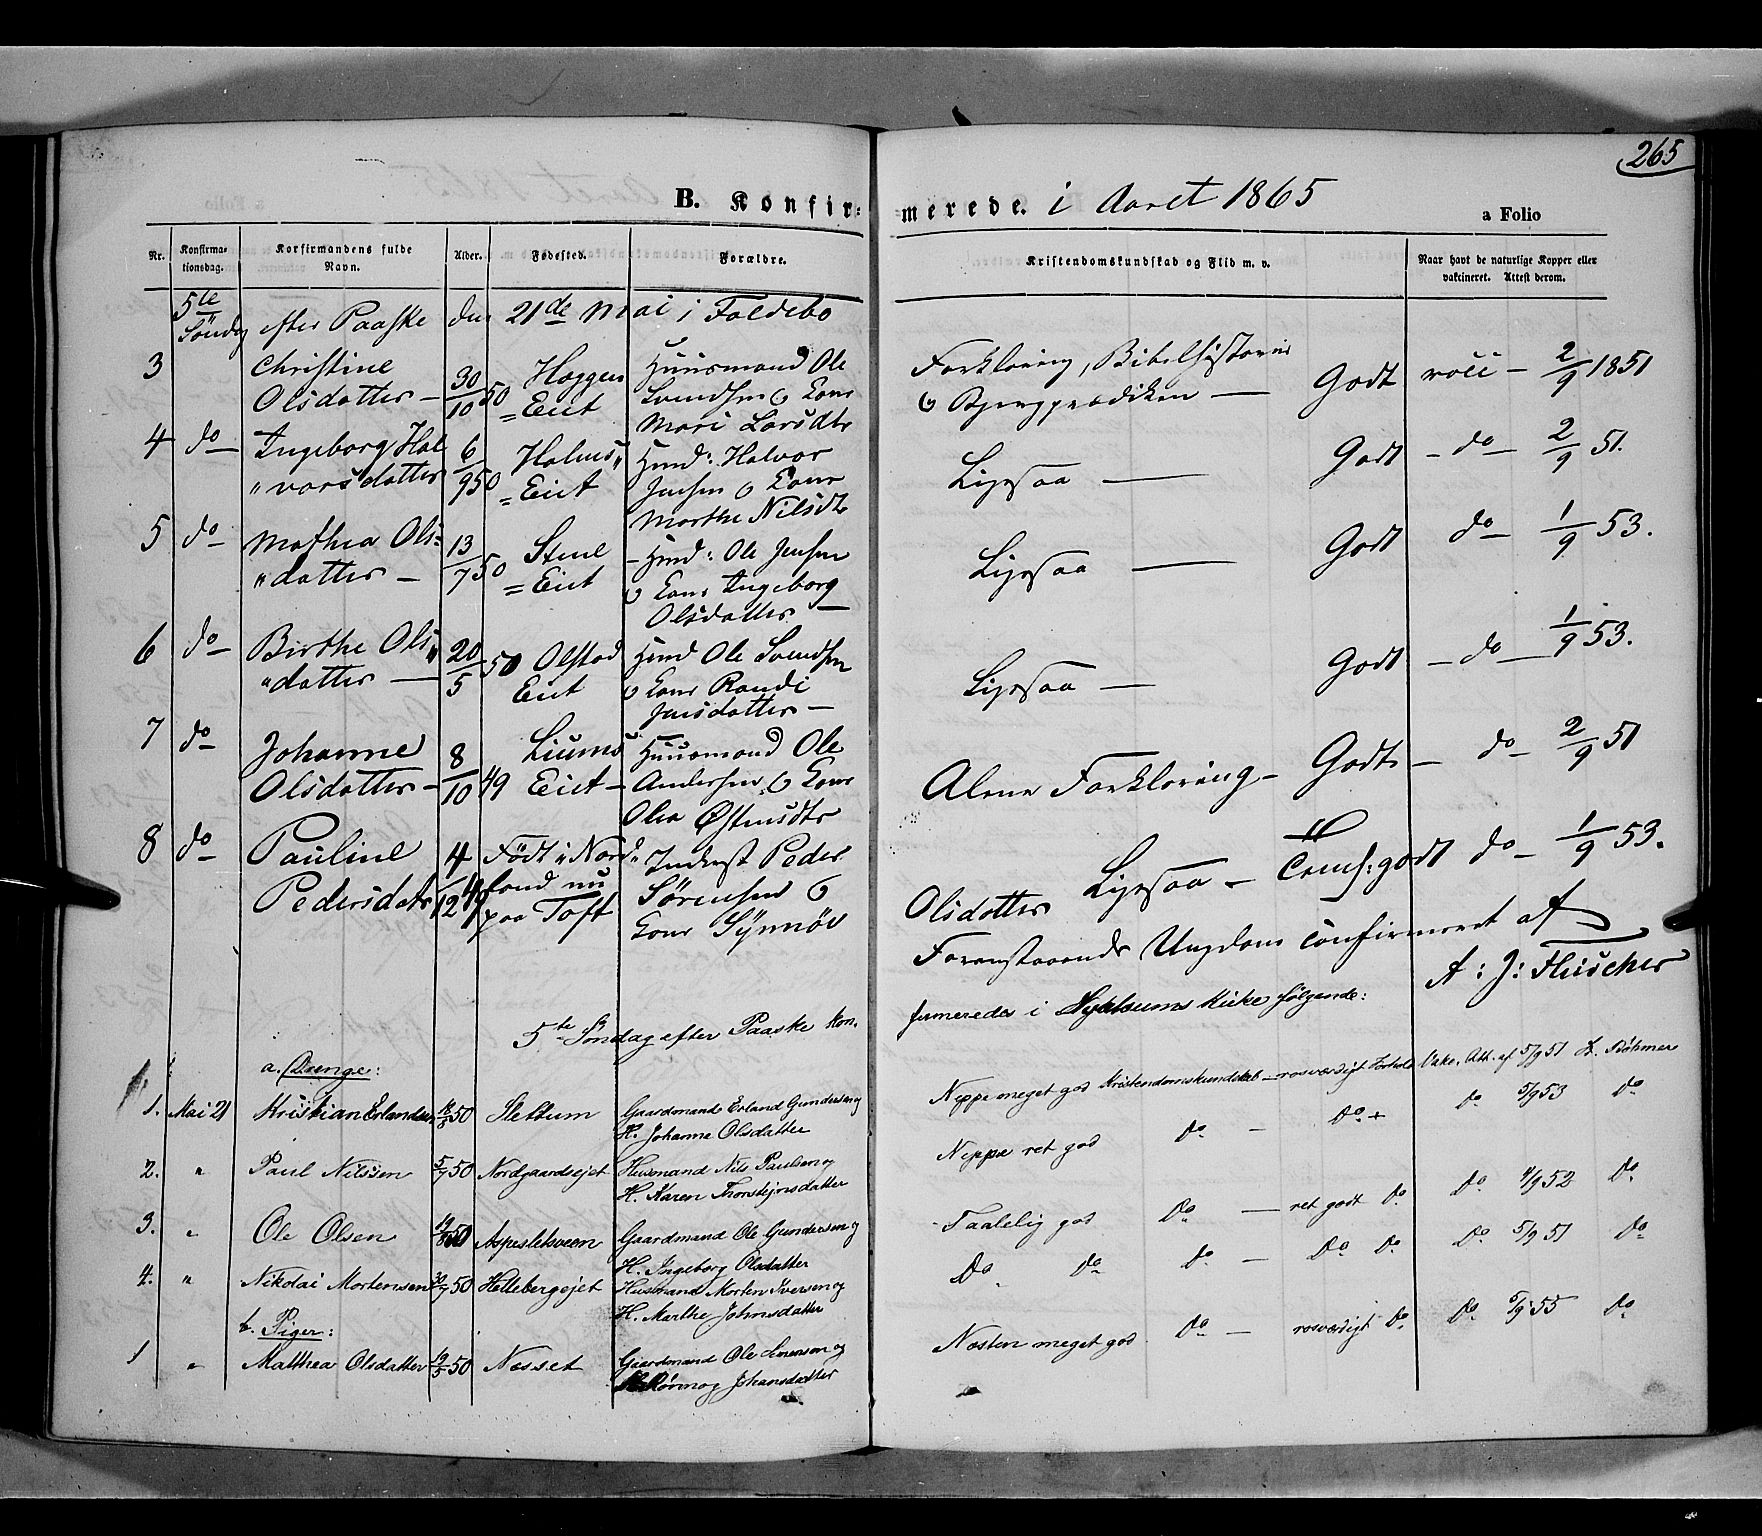 265
B. Konfir-
merede. i Aaret 1865
a Folio
Nr.
Konfirma-
tionsdag.
Konfirmandens fulde
Navn.
Alder.
Fødested.
Forældre.
Kristendomskundskab og Flid m. v.
Naar havt de naturlige Kopper eller
vaktineret. Attest derom.
5te Søndag efter Paaske den 21de Mai i Foldebo
3 Christine Olsdatter — 30/10 50 Haggen = Eiet Huusmand Ole Svendsen o Kone Mari Larsdtr Forklaring, Bibelhistorie o Bjergprædiken — Godt vacc — 2/9 1851
4 do — Ingeborg Hal "vorsdatter 6/9 50 Holms" = Eiet Hmd: Halvor Jensen o Kone Marthe Nilsdtr Ligesaa — Godt — do — 2/9 51.
5 do — Mathea Ols= "datter — 13/7 50 Stene = Eiet Hmd: Ole Jensen o Kone Ingeborg Olsdatter — Ligesaa — Godt do — 1/9 53.
6 do — Birthe Ols" "datter — 20/5 50 Olstad Eiet Hmd Ole Svendsen o Kone Randi Jensdatter — Ligesaa — Godt — do — 1/9 53.
7 do — Johanne Olsdatter — 8/10 49 Liums Eiet — Huusmand Ole Andersen o Kone Olea Østensdtr Alene Forklaring — Godt — do — 2/9 51
8 do — Pauline Pedersdatr 4/12 49 Født i Nord" fond nu paa Toft Inderst Peder Sørensen o Kone Synnöv Olsdatter Ligesaa — godt do — 1/9 53.
Foranstaaende Ungdom confirmeret af
A: J: Fleischer
5te Søndag efter Paaske kon-
firmeredes i Kirke følgende:
a. Drenge:
1. Mai 21 Kristian Erlandsen 50 Slettum Gaardmand Erland Gundersen og H. Johanne Olsdatter Neppe meget god Kristendomskundskab — rosværdigt Forhold Vakc. Att. af 5/9 51 L. Bøhmer
2. " Paul Nilssen 5/7 50 Nordgaardsejet Husmand Nils Paulsen og H. Karen Thorstejnsdatter Neppe ret god Do — Do Do 5/9 53 Do
3. " Ole Olsen 50 Aspesletsveen Gaardmand Ole Gundersen og H. Ingeborg Olsdatter Taalelig god Do — ret godt Do Do 4/9 52 Do
4. " Nikolai Mortensen 30/7 50 Hellebergejet Husmand Morten Iversen og H. Marthe Johnsdatter Do Do Do — Do Do Do 5/9 51 Do
b. Piger:
1 " Matthea Olsdatter 50 Næsset Gaardmand Ole Simensen og Johansdatter Næsten meget god Do — rosværdigt Do Do 5/9 55 Do